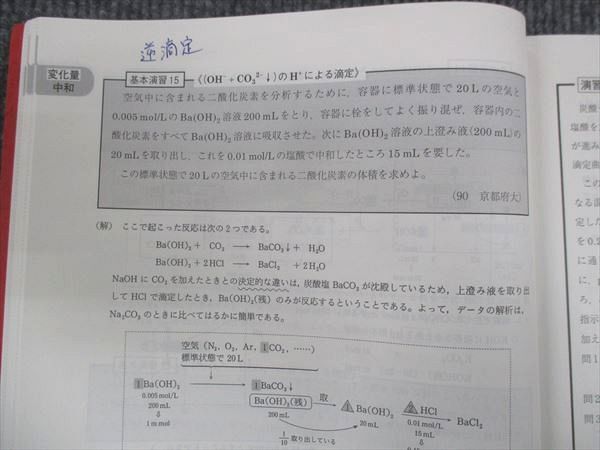 逆滴定
変化量
中和
基本演習15 《(OH⁻+CO₃²⁻↓)のH⁺による滴定》
空気中に含まれる二酸化炭素を分析するために，容器に標準状態で20Lの空気と
0.005mol/LのBa(OH)₂溶液200mLをとり，容器に栓をしてよく振り混ぜ，容器内の二
酸化炭素をすべてBa(OH)₂溶液に吸収させた。次にBa(OH)₂溶液の上澄み液(200mL)の
20mLを取り出し，これを0.01mol/Lの塩酸で中和したところ15mLを要した。
この標準状態で20Lの空気中に含まれる二酸化炭素の体積を求めよ。
(90 京都府大)
(解) ここで起こった反応は次の2つである。
Ba(OH)₂ + CO₂ → BaCO₃↓ + H₂O
Ba(OH)₂ + 2HCl → BaCl₂ + 2H₂O
NaOHにCO₂を加えたときとの決定的な違いは，炭酸塩BaCO₃が沈殿しているため，上澄み液を取り出
してHClで滴定したとき，Ba(OH)₂(残)のみが反応するということである。よって，データの解析は，
Na₂CO₃のときに比べてはるかに簡単である。
空気(N₂，O₂，Ar，iCO₂，……)
標準状態で20L
iBa(OH)₂ → iBaCO₃↓
Ba(OH)₂(残) 取 Ba(OH)₂ HCl → BaCl₂
0.005mol/L 200mL 20mL 0.01mol/L
200mL 15mL
1mmol
1/10 取り出している
演習
炭酸
塩酸を
が進み
滴定曲
この
なる混
定した
を0.2
に通
に，
ろ，
指示
加え
問1
問2
問3